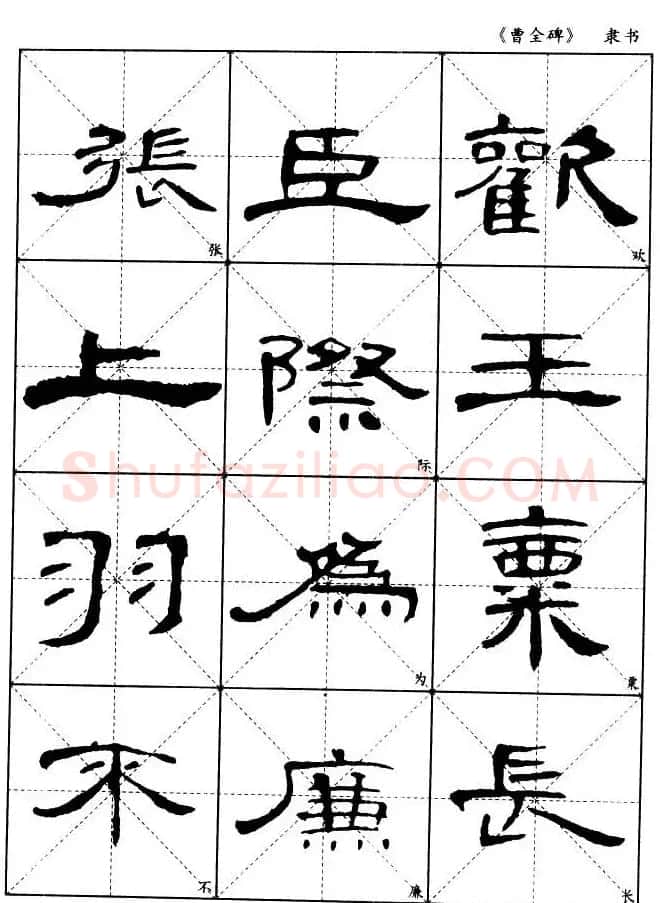 《曹全碑》 隶书
張 臣 歡
张 欢
上 際 王
际
羽 為 粟
为 粟
不 廉 長
不 廉 长
Shufaziliao.COM